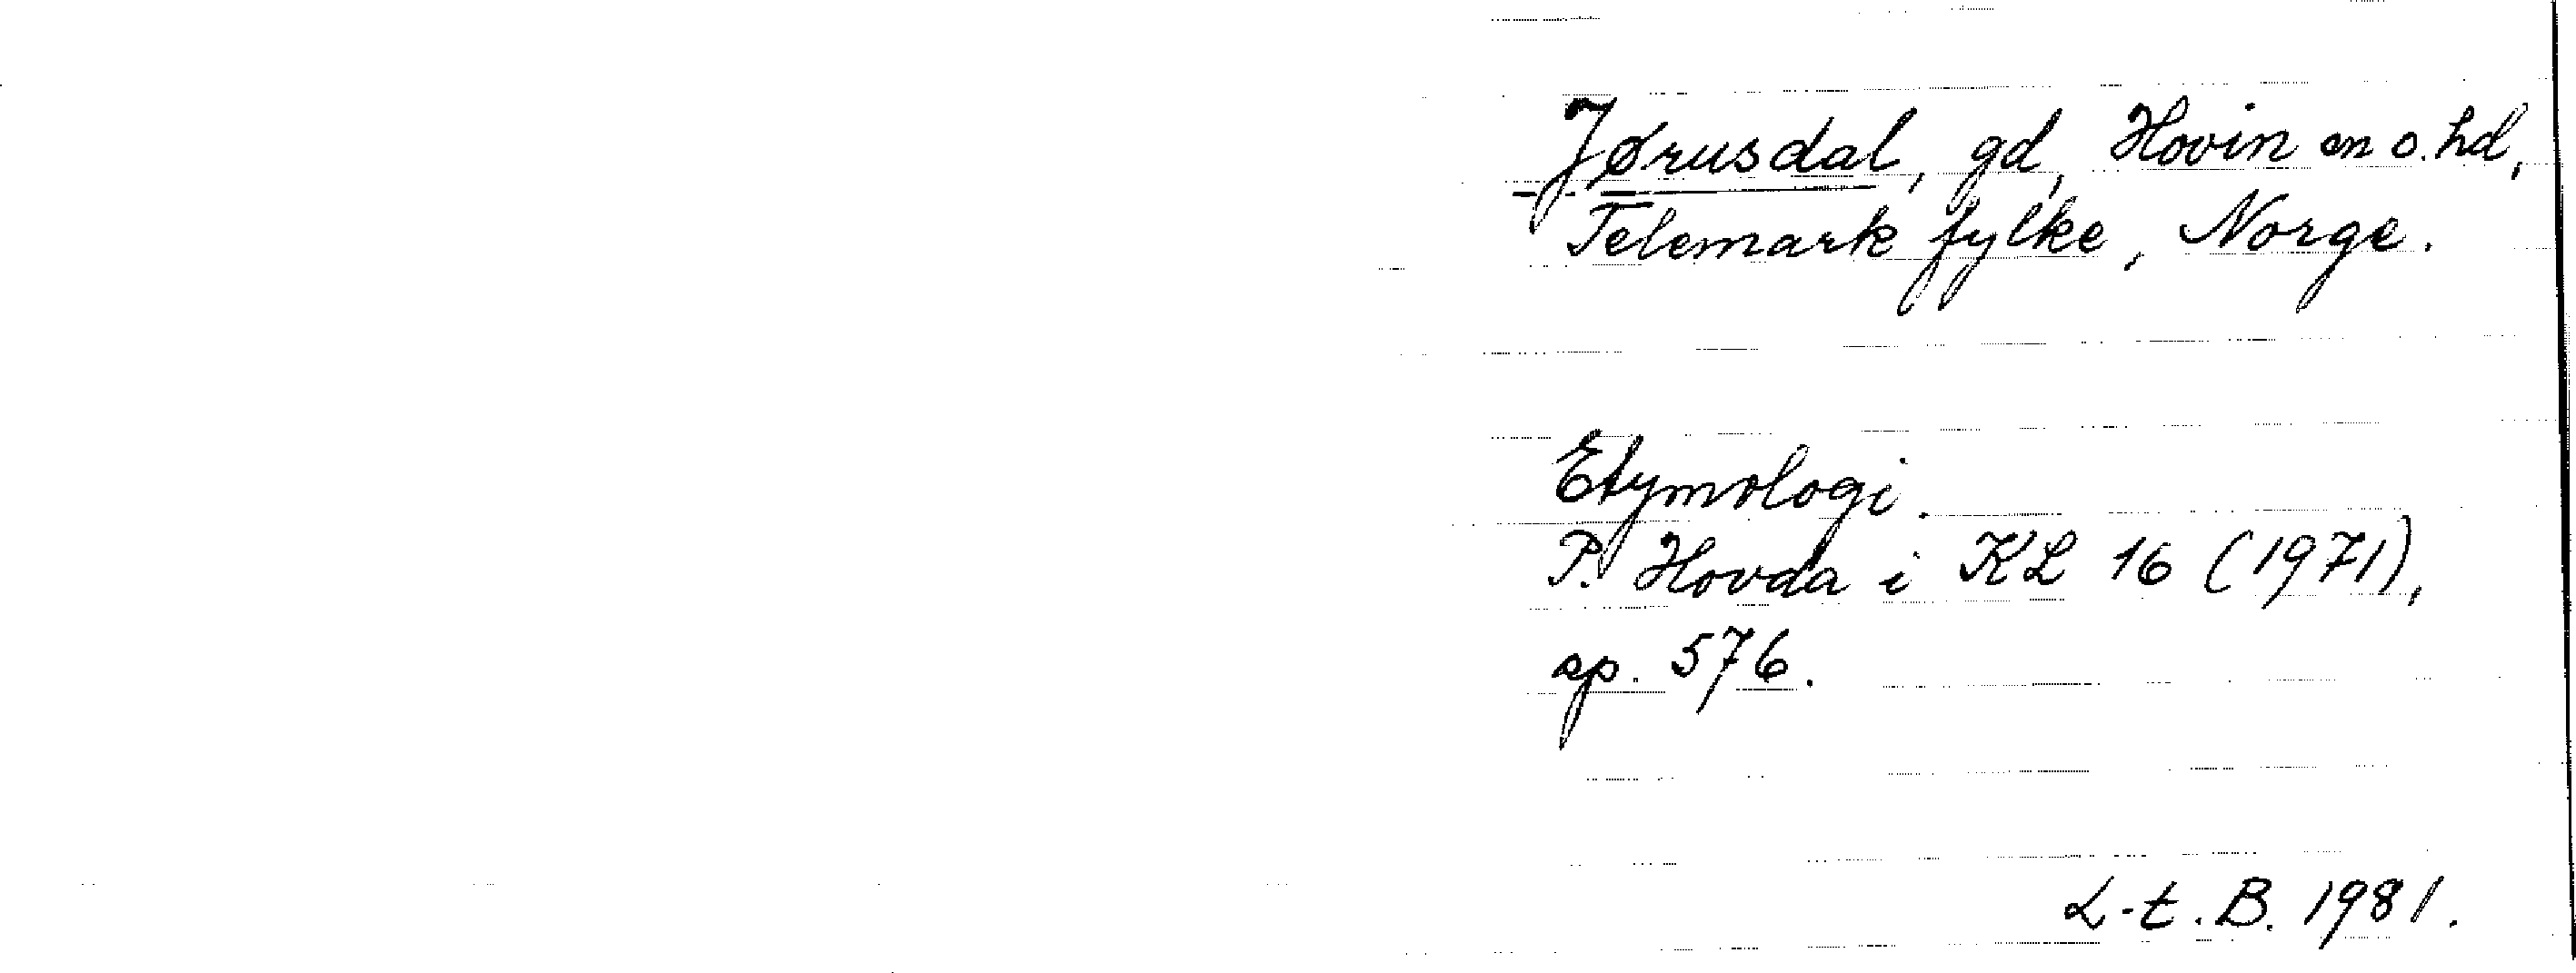 Jørusdal, gd, Hovin sn o. hd,
Telemark fylke, Norge.
Etymologi.
P. Hovda i KL 16 (1971),
sp. 576.
L-t. B. 1981.